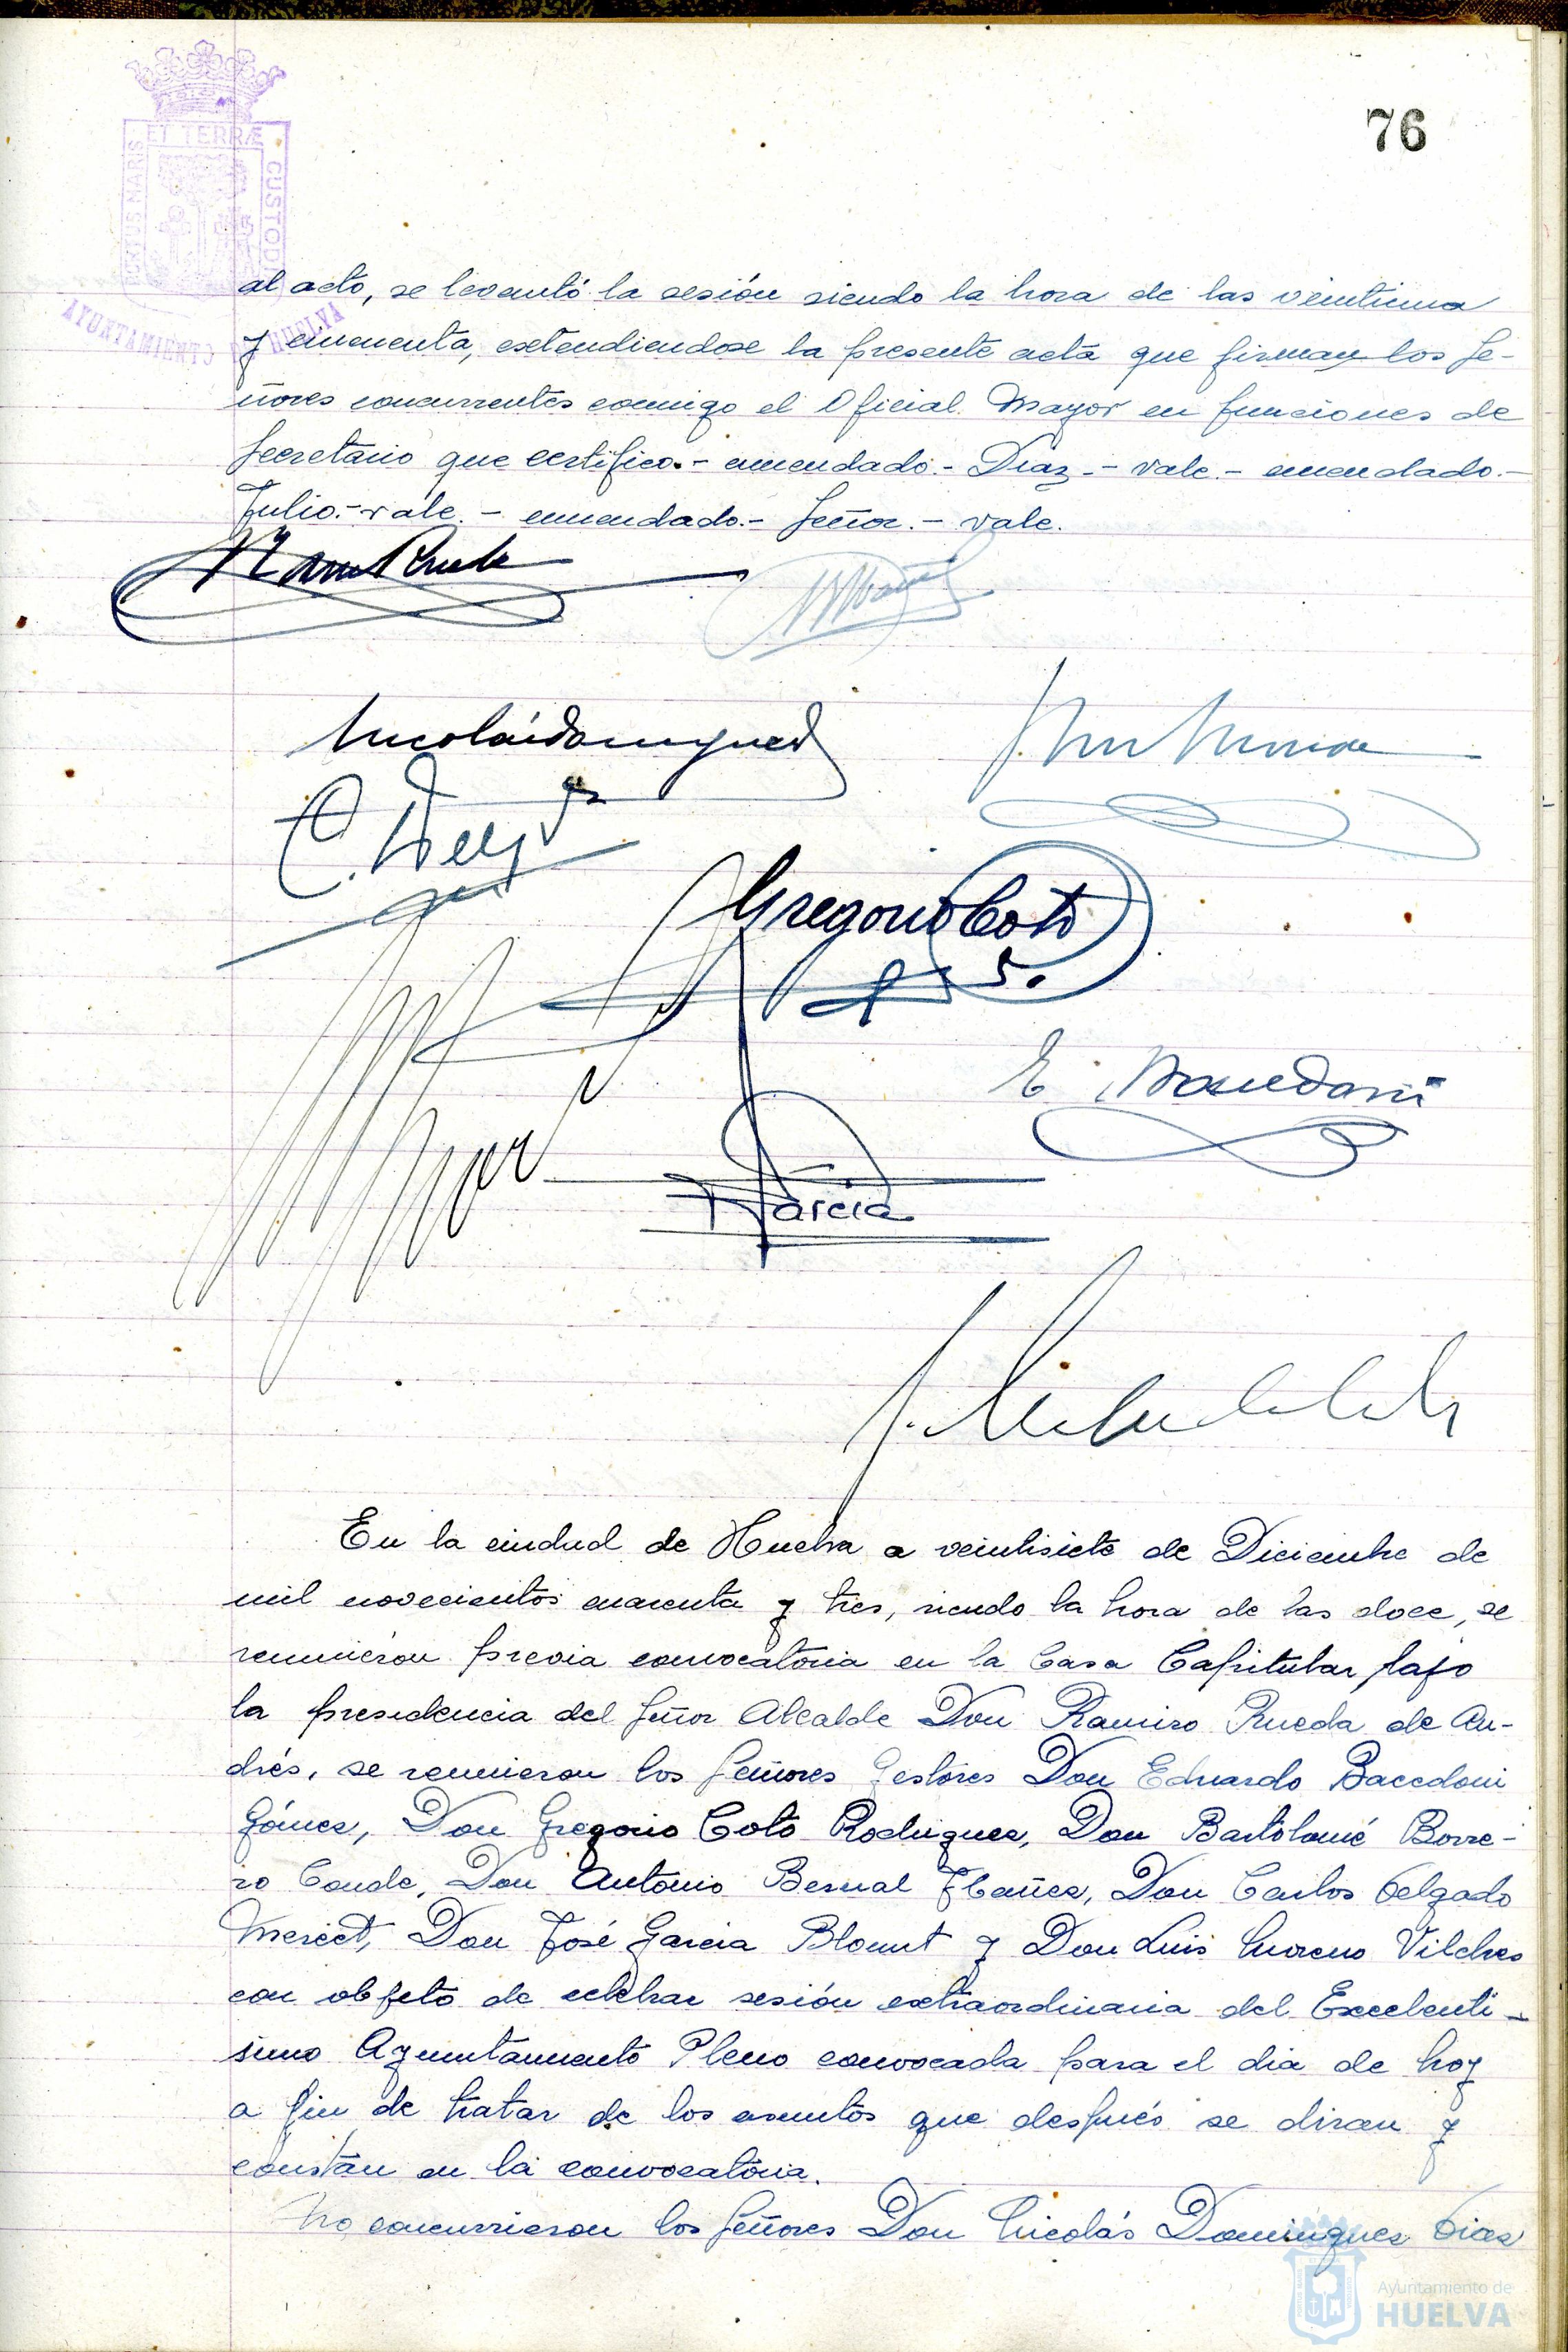 76
PORTUS MARIS ET TERRÆ CUSTODIA
AYUNTAMIENTO DE HUELVA
al acto, se levantó la sesión siendo la hora de las veintiuna
y cincuenta, extendiendose la presente acta que firman los Se-
ñores concurrentes conmigo el Oficial Mayor en funciones de
Secretario que certifico.- enmendado.- Diaz.- vale.- enmendado.-
Julio.- vale.- enmendado.- Señor.- vale.
Gregorio Coto
García
En la ciudad de Huelva a veintisiete de Diciembre de
mil novecientos cuarenta y tres, siendo la hora de las doce, se
reunieron previa convocatoria en la Casa Capitular, bajo
la presidencia del Señor Alcalde Don Ramiro Rueda de An-
drés, se reunieron los Señores Gestores Don Eduardo Bacedoni
Gómez, Don Gregorio Coto Rodriguez, Don Bartolomé Borre-
ro Conde, Don Antonio Bernal Ibañez, Don Carlos Delgado
Don José Garcia Blount y Don Luis Moreno Vilches
con objeto de celebrar sesión extraordinaria del Excelenti-
simo Ayuntamiento Pleno convocada para el dia de hoy
a fin de tratar de los asuntos que después se diran y
constan en la convocatoria.
No concurrieron los Señores Don Nicolás Dominguez Diaz
Ayuntamiento de
HUELVA